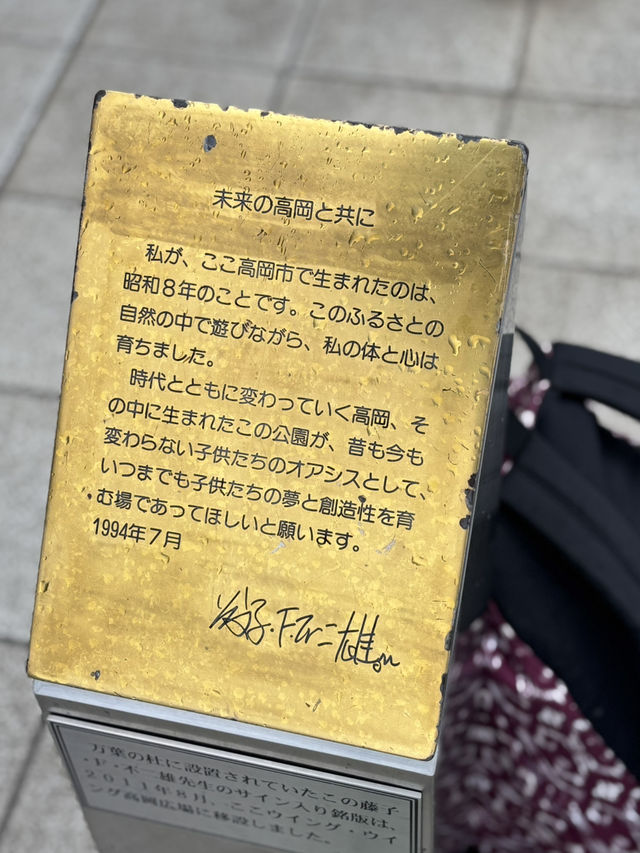 未来の高岡と共に
私が、ここ高岡市で生まれたのは、
昭和8年のことです。このふるさとの
自然の中で遊びながら、私の体と心は
育ちました。
時代とともに変わっていく高岡、そ
の中に生まれたこの公園が、昔も今も
変わらない子供たちのオアシスとして、
いつまでも子供たちの夢と創造性を育
む場であってほしいと願います。
1994年7月
万葉の杜に設置されていたこの藤子
・F・不二雄先生のサイン入り銘版は、
2011年8月、ここウイング・ウイ
ング高岡広場に移設しました。